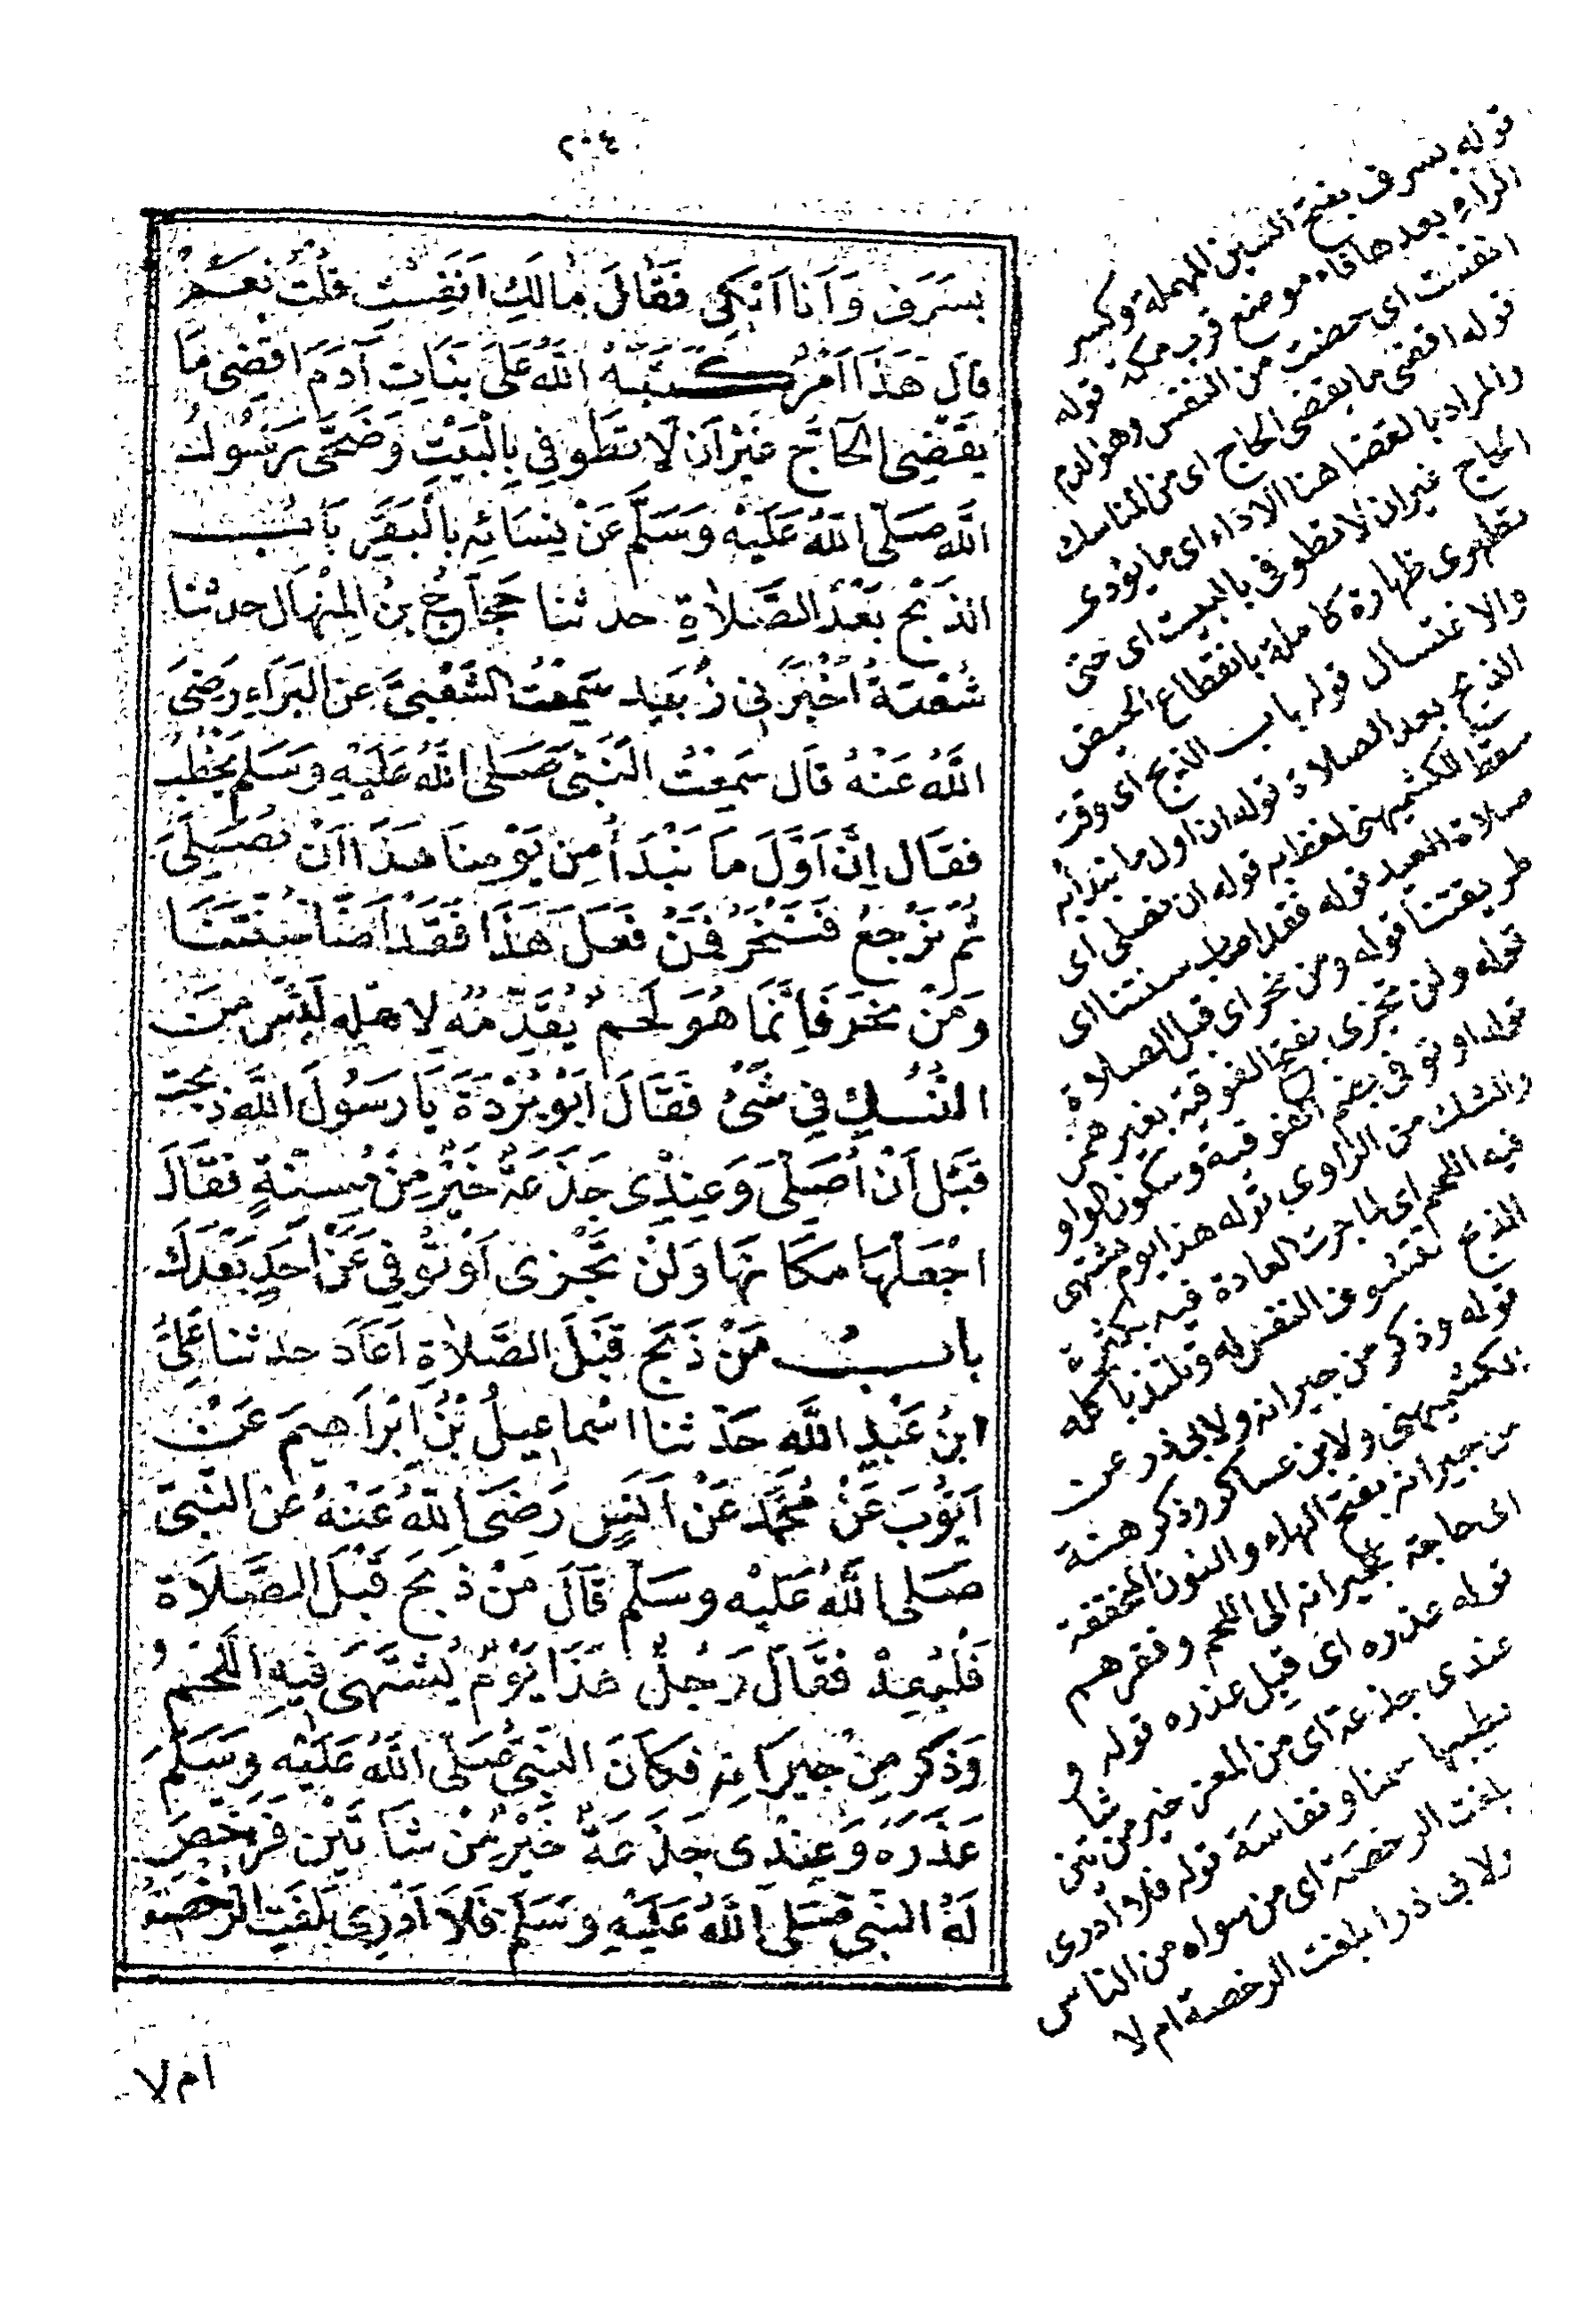 ٢٠٤
بِسَرَفَ وَاَنَا اَبْكِى فَقَالَ مَالَكِ اَنَفِسْتِ قُلْتُ نَعَمْ
قَالَ هَذَا اَمْرٌ كَتَبَهُ اللّٰهُ عَلَى بَنَاتِ آدَمَ اقْضِى مَا
يَقْضِى الحَاجُّ غَيْرَ اَنْ لَا تَطُوفِى بِالْبَيْتِ وَضَحَّى رَسُولُ
اللّٰهِ صَلَّى اللّٰهُ عَلَيْهِ وَسَلَّمَ عَنْ نِسَائِهِ بِالْبَقَرِ بَابُ
الذَبْحِ بَعْدَ الصَّلَاةِ حدثنا حَجَّاجُ بنُ المِنْهَالِ حدثنا
شُعْبَةُ اَخْبَرَنِى زُبَيْد سَمِعْتُ الشَّعْبِىَّ عَنِ البَرَاءِ رَضِىَ
اللّٰهُ عَنْهُ قَالَ سَمِعْتُ النَّبِىَّ صَلَى اللّٰهُ عَلَيْهِ وَسَلَمَ يَخْطُبُ
فقَالَ اِنَّ اَوَّلَ مَا نَبْدَأُ مِنْ يَوْمِنَا هَذَا اَنْ نُصَلِّىَ
ثُمَّ نَرْجِعُ فَنَنْحَرُ فَمَنْ فَعَلَ هَذَا فَقَدْ اَصَابَ سُنَّتَنَا
وَمَنْ نَحَرَ فَاِنَّمَا هُوَ لَحْمٌ يُقَدِّمُهُ لِاهْلِهِ لَيْسَ مِنَ
النُّسُكِ فِي شَىْءٍ فَقَالَ اَبُو بُرْدَةَ يَا رَسُولَ اللَّهِ ذَبَحْتُ
قَبْلَ اَنْ اُصَلِّىَ وَعِنْدِى جَذَعَةٌ خَيْرٌ مِنْ مُسِنَّةٍ فَقَالَ
اجْعَلْهَا مَكَانَهَا وَلَنْ تَجْزِىَ اَوْ تُوفِىَ عَنْ اَحَدٍ بَعْدَكَ
بابُ مَنْ ذَبَحَ قَبْلَ الصَّلَاةِ اَعَادَ حدثنا عَلِىُّ
ابنُ عَبْدِ اللَّهِ حَدثنا اسْمَاعِيلُ بْنُ اِبْرَاهِيمَ عَنْ
اَيُّوبَ عَنْ مُحَمَّدٍ عَنْ اَنَسٍ رَضِىَ اللّٰهُ عَنْهُ عَنِ النَّبِىِّ
صَلى اللّٰهُ عَلَيْهِ وسَلَّمَ قَالَ مَنْ ذَبَحَ قَبْلَ الصَّلَاةِ
فَلْيُعِدْ فَقَالَ رَجُلٌ هَذَا يَوْمٌ يُشْتَهَى فِيهِ اللَّحْمُ
وَذَكَرَ مِنْ جِيرَانِهِ فَكَانَ النَّبِىُّ صَلَّى اللّٰهُ عَلَيْهِ وَسَلَّمَ
عَذَرَهُ وَعِنْدِى جَذَعَةٌ خَيْرٌ مِنْ شَاتَيْنِ فَرَخَّصَ
لَهُ النَّبِى صَلى اللّٰهُ عَلَيْهِ وَسَلَّمَ فَلَا اَدْرِى بَلَغَتِ الرُّخْصَةُ
ام لا
قوله بسرف بفتح السين المهملة وكسر
الراء بعدها فاء موضع قرب مكة قوله
انفست اى حضت من النفس وهو الدم
قوله اقضى ما يقضى الحاج اى من المناسك
والمراد بالقضا هنا الاداء اى ما يؤدى
الحاج غيران لا تطوفى بالبيت اى حتى
تطهرى طهارة كاملة بانقطاع الحيض
والاغتسال قوله باب الذبح اى وقت
الذبح بعد الصلاة قوله ان اول ما نبدأ به
سقط للكشميهنى لفظ به قوله ان نصلى اى
صلاة العيد قوله فقد اصاب سنتنا اى
طريقتنا قوله ومن نحر اى قبل الصلاة
قوله ولن تجزى بفتح الفوقية بغير همز
قوله او توفى بضم الفوقية وسكون الواو
والشك من الراوى قوله هذا يوم يشتهى
فيه اللحم اى لما جرت العادة فيه بكثرة
الذبح تتشوف النفس له وتلتذ باكله
قوله وذكر من جيرانه ولابى ذر عن
الكشميهنى ولابن عساكر وذكر هنة
من جيرانه بفتح الهاء والنون المخففة
اى حاجة لجيرانه الى اللحم وفقرهم
قوله عذره اى قبل عذره قوله و
عندى جذعة اى من المعز خير من شاتين
لطيبها سمنا ونفاسة قوله فلا ادرى
بلغت الرخصة اى من سواه من الناس
ولابى ذر ابلغت الرخصة ام لا